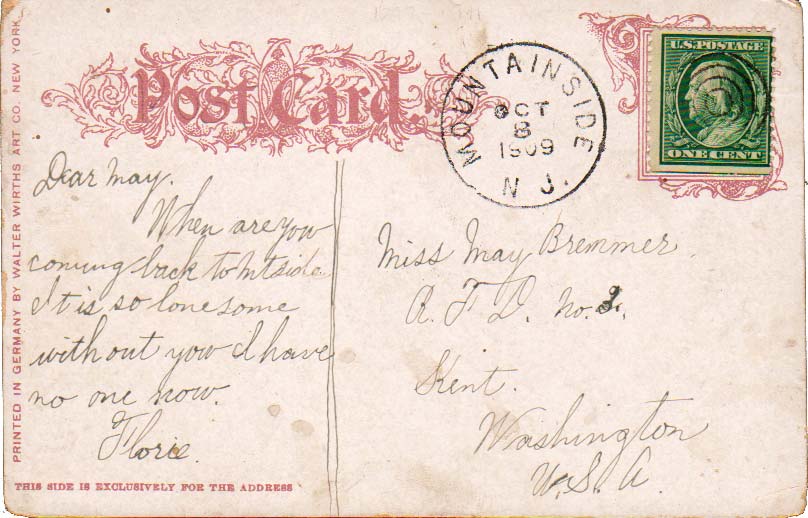 Post Card.
MOUNTAINSIDE
OCT
8
1909
N J.
U.S. POSTAGE
ONE CENT
PRINTED IN GERMANY BY WALTER WIRTHS ART CO. NEW YORK
Dear May.
When are you
coming back to Mtside
It is so lonesome
without you I have
no one now.
Floris.
Miss May Bremmer.
R. F. D. No. 2.
Kent.
Washington
U. S. A.
THIS SIDE IS EXCLUSIVELY FOR THE ADDRESS